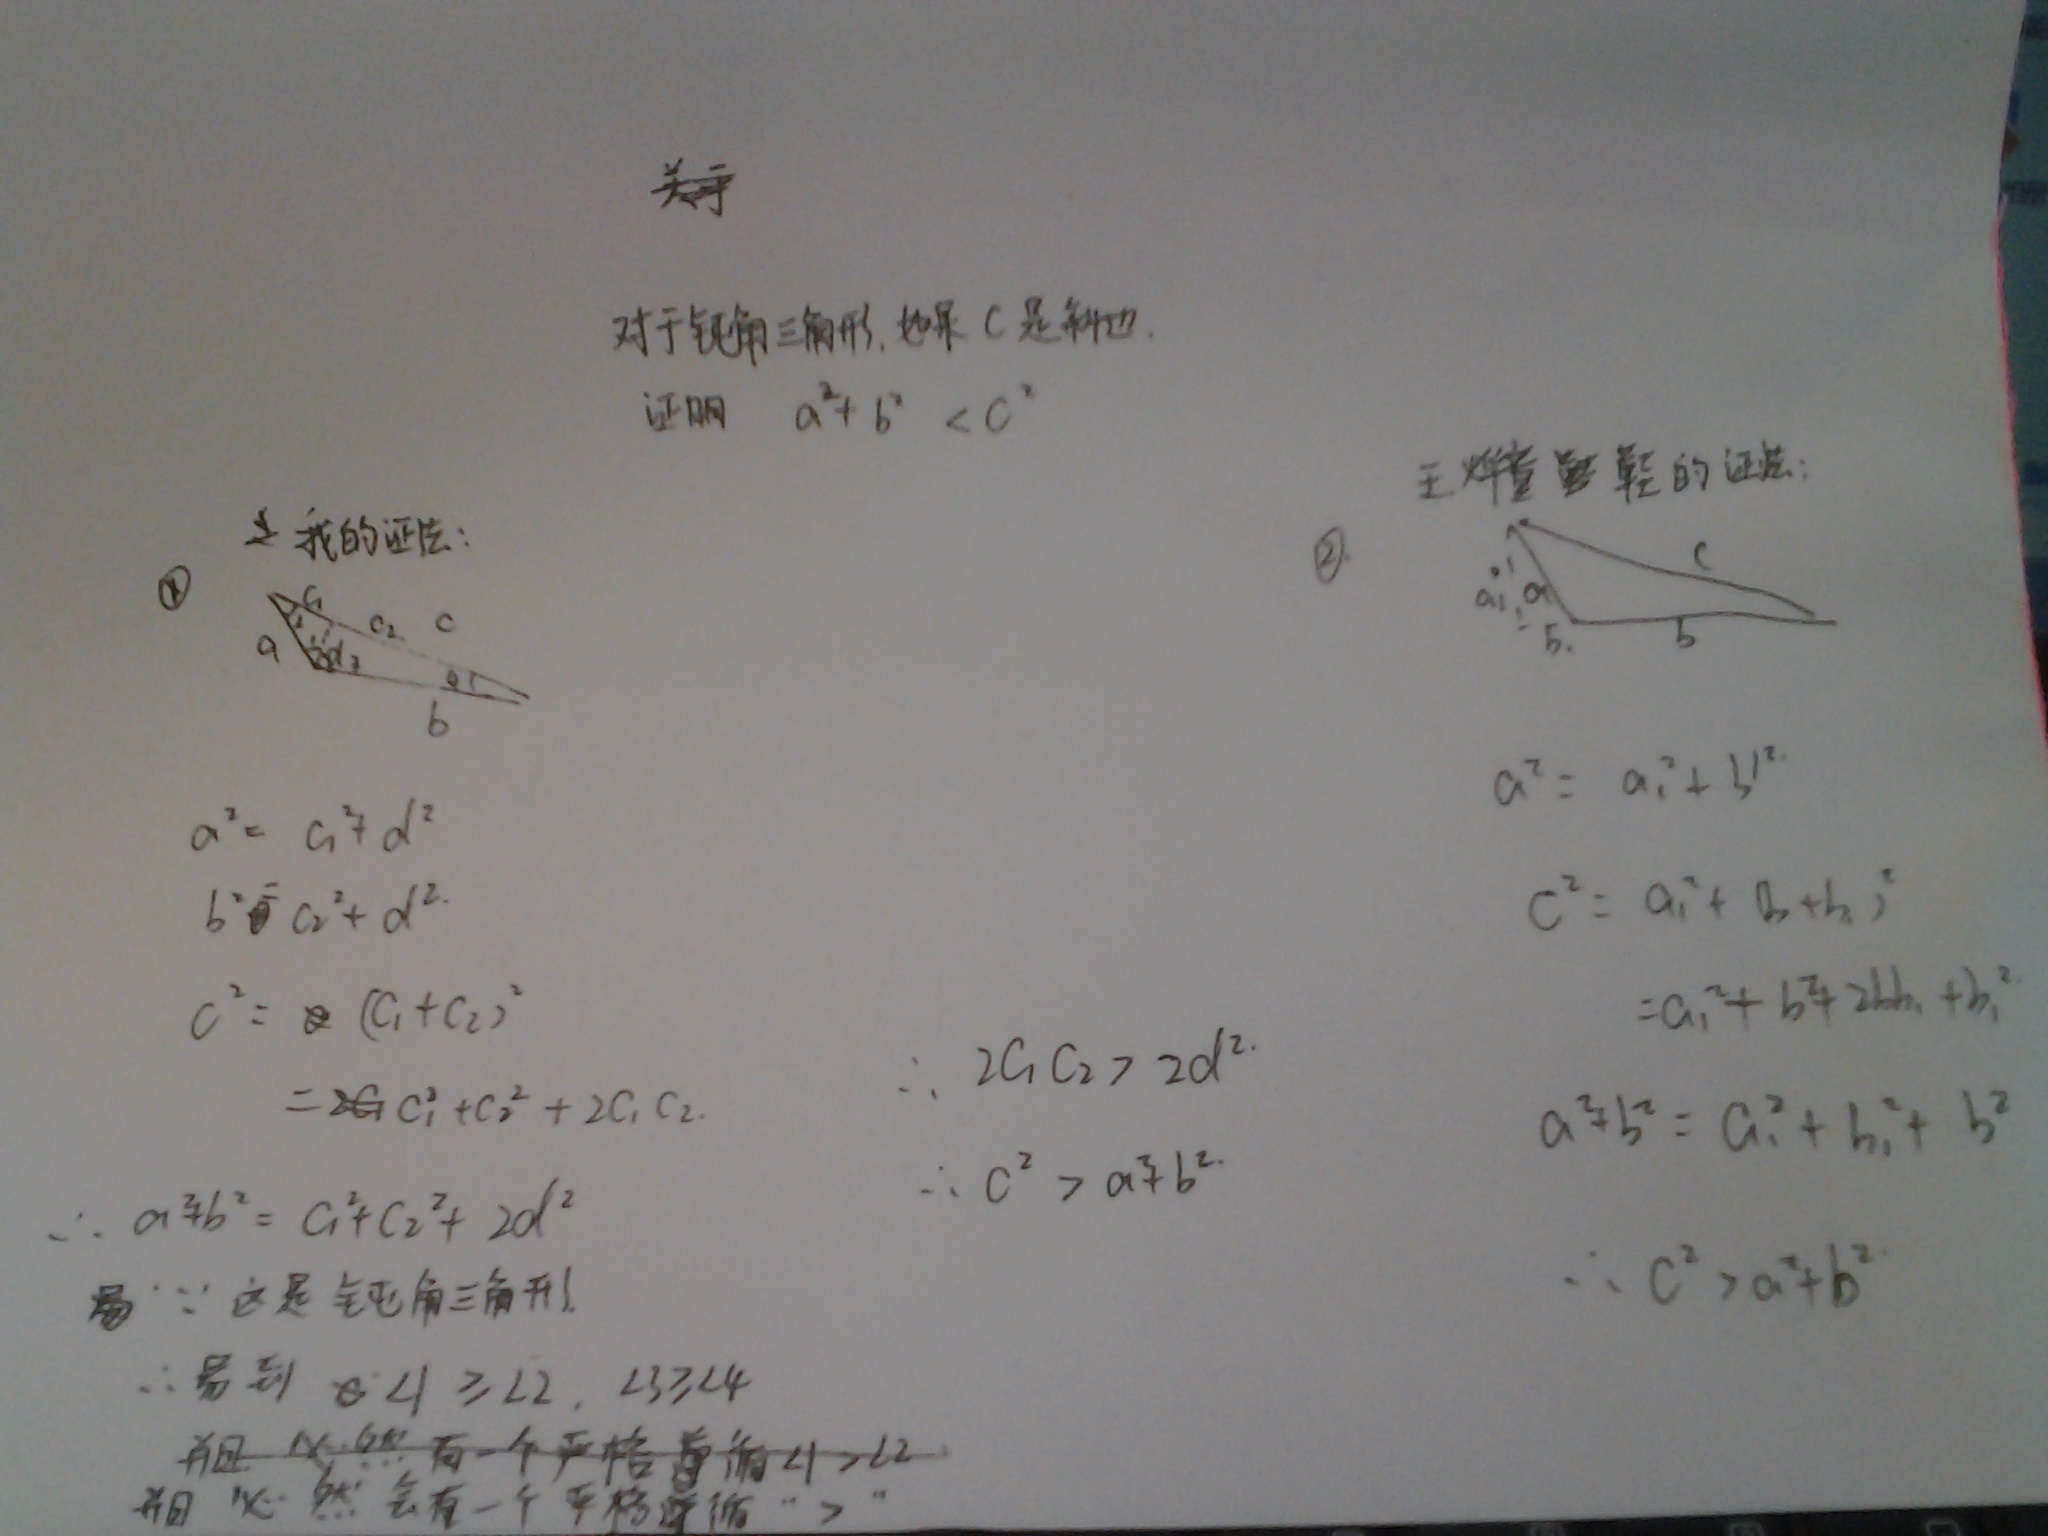 关于
对于钝角三角形，如果 C 是斜边.
证明 a² + b² < C²
我的证法：
①
a
b
c
c₁
c₂
d
a² = C₁² + d²
b² = C₂² + d².
C² = (C₁ + C₂)²
= C₁² + C₂² + 2C₁C₂.
∴ a² + b² = C₁² + C₂² + 2d²
∵ 这是钝角三角形.
∴ 易到 ∠1 ≥ ∠2, ∠3 ≥ ∠4
并且必然有一个严格遵循 ∠1 > ∠2
并且必然会有一个严格遵循 “ > ”
∴ 2C₁C₂ > 2d².
∴ C² > a² + b².
的证法：
②.
a₁
a
b₁
b
c
a² = a₁² + b₁².
C² = a₁² + (b + b₁)²
= a₁² + b² + 2bb₁ + b₁².
a² + b² = a₁² + b₁² + b²
∴ C² > a² + b².